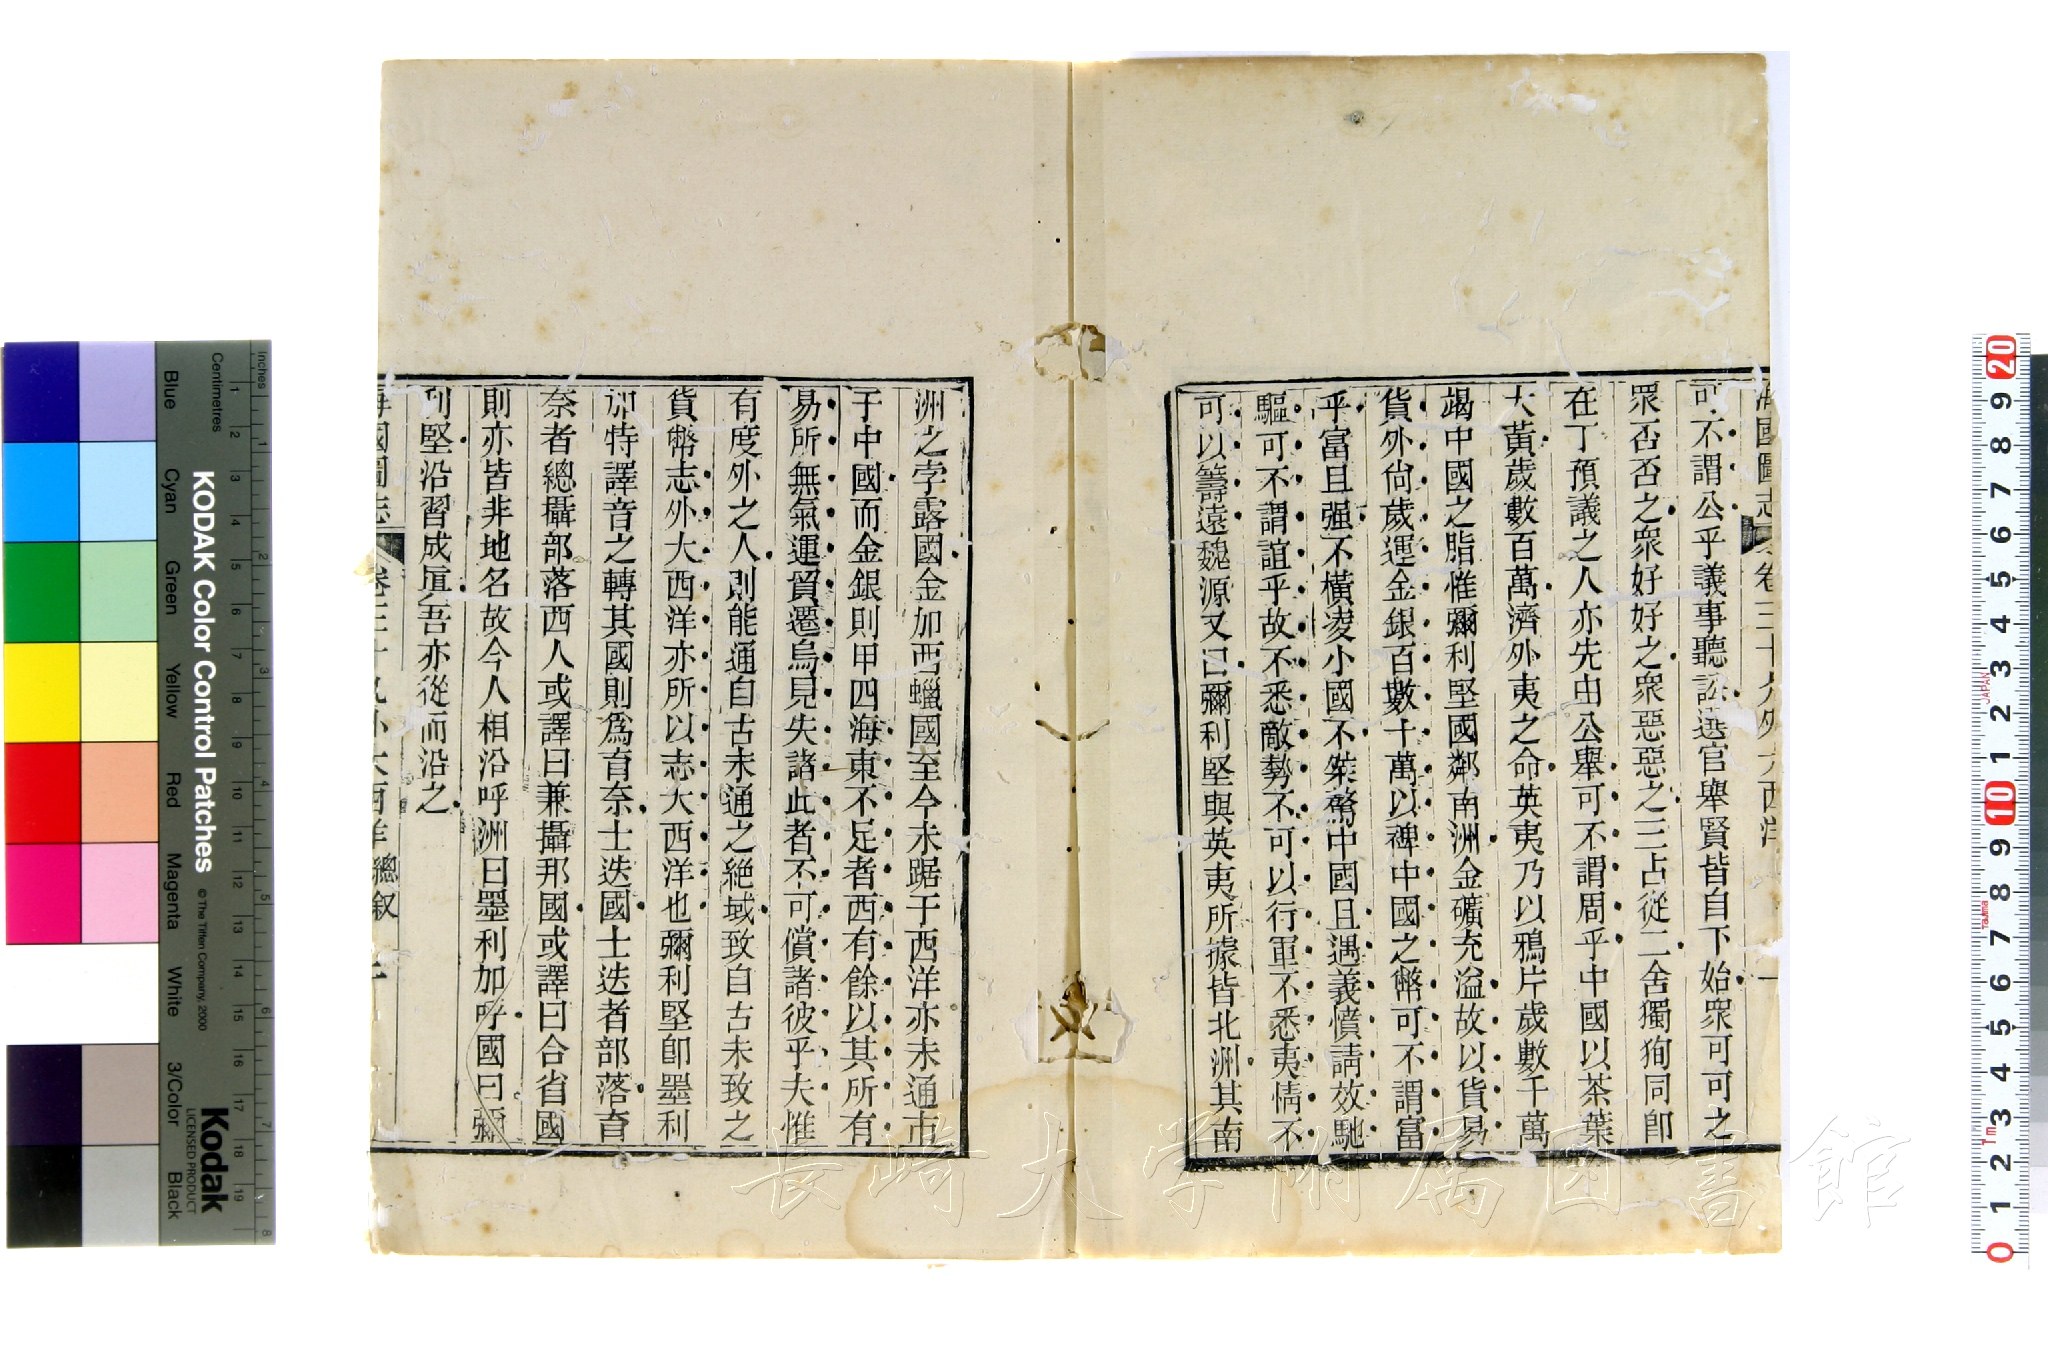 海國圖志 卷三十九 外大西洋 一
可不謂公乎議事聽訟選官舉賢皆自下始眾可可之
眾否否之眾好好之眾惡惡之三占從二舍獨徇同即
在下預議之人亦先由公舉可不謂周乎中國以茶葉
大黃歲數百萬濟外夷之命英夷乃以鴉片歲數千萬
竭中國之脂惟彌利堅國鄰南洲金礦充溢故以貨易
貨外尙歲運金銀百數十萬以裨中國之幣可不謂富
乎富且强不橫凌小國不桀驁中國且遇義憤請效馳
驅可不謂誼乎故不悉敵勢不可以行軍不悉夷情不
可以籌遠魏源又曰彌利堅與英夷所據皆北洲其南
洲之孛露國金加西蠟國至今未踞于西洋亦未通市
于中國而金銀則甲四海東不足者西有餘以其所有
易所無氣運貿遷烏見失諸此者不可償諸彼乎夫惟
有度外之人則能通自古未通之絶域致自古未致之
貨幣志外大西洋亦所以志大西洋也彌利堅卽墨利
加特譯音之轉其國則爲育奈士迭國士迭者部落育
奈者總攝部落西人或譯曰兼攝邦國或譯曰合省國
則亦皆非地名故今人相沿呼洲曰墨利加呼國曰彌
利堅沿習成眞吾亦從而沿之
海國圖志 卷三十九 外大西洋 總叙 二
KODAK Color Control Patches
© The Tiffen Company, 2000
Kodak
LICENSED PRODUCT
Inches
Centimetres
Blue
Cyan
Green
Yellow
Red
Magenta
White
3/Color
Black
長崎大学附属図書館